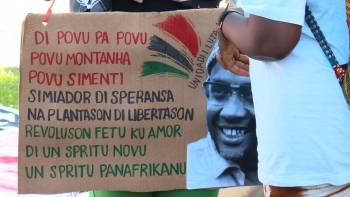 DI POVU PA POVU
POVU MONTANHA
POVU SIMENTI
SIMIADOR DI SPERANSA
NA PLANTASON DI LIBERTASON
REVOLUSON FETU KU AMOR
DI UN SPRITU NOVU
UN SPRITU PANAFRIKANU
UNIDADI I LUTA